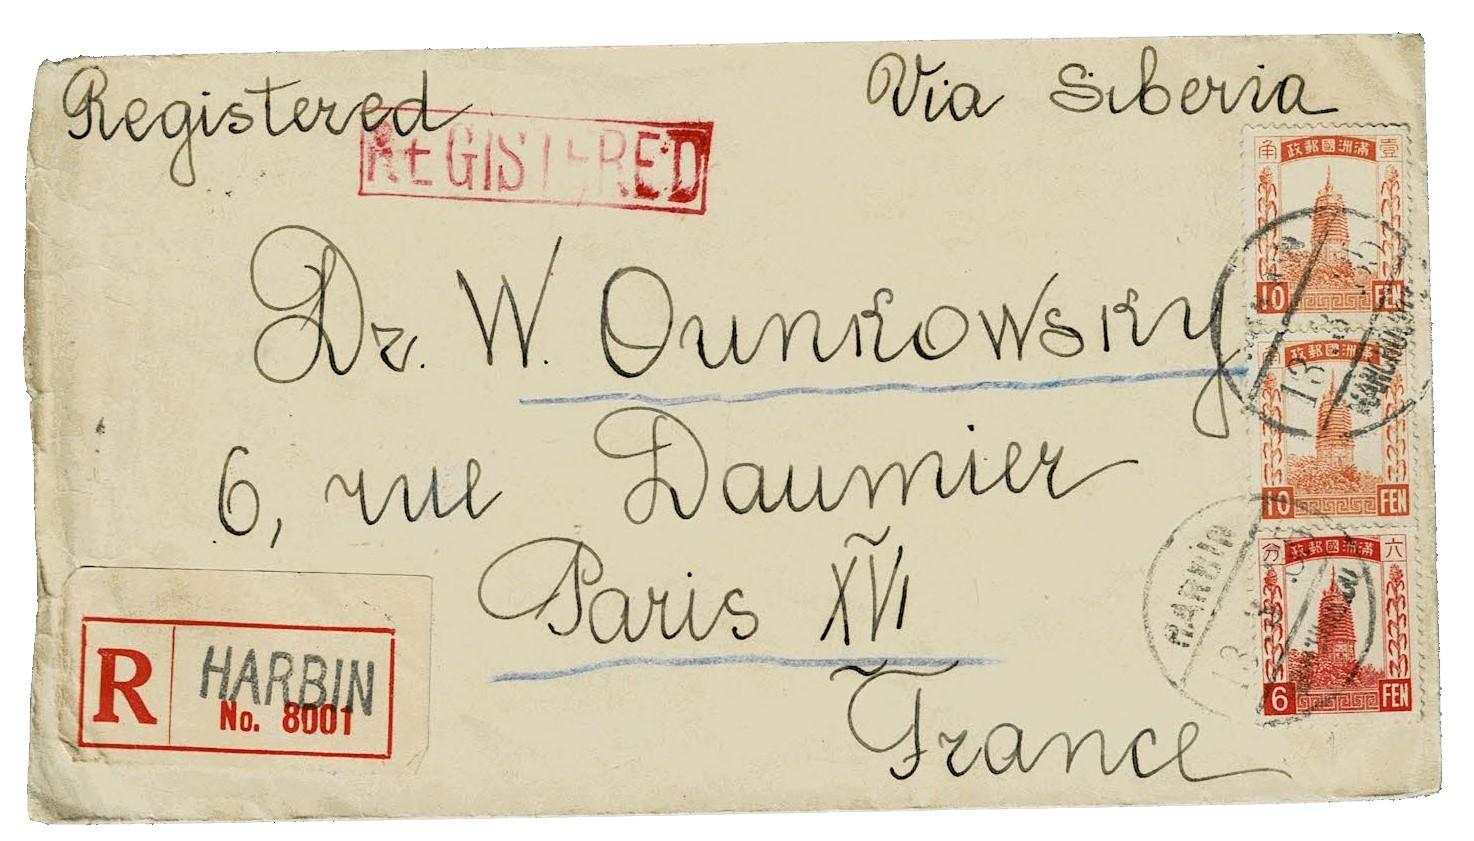 Registered
Via Siberia
REGISTERED
Dr. W. Ounkowsky
6, rue Daumier
Paris XVI
France
R HARBIN
No. 8001
角 政郵國洲滿 壹
10 FEN
政郵國洲滿
10 FEN
分 政郵國洲滿 六
6 FEN
HARBIN
13
HARBIN
13